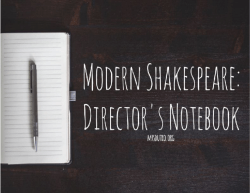 MODERN SHAKESPEARE:
DIRECTOR'S NOTEBOOK